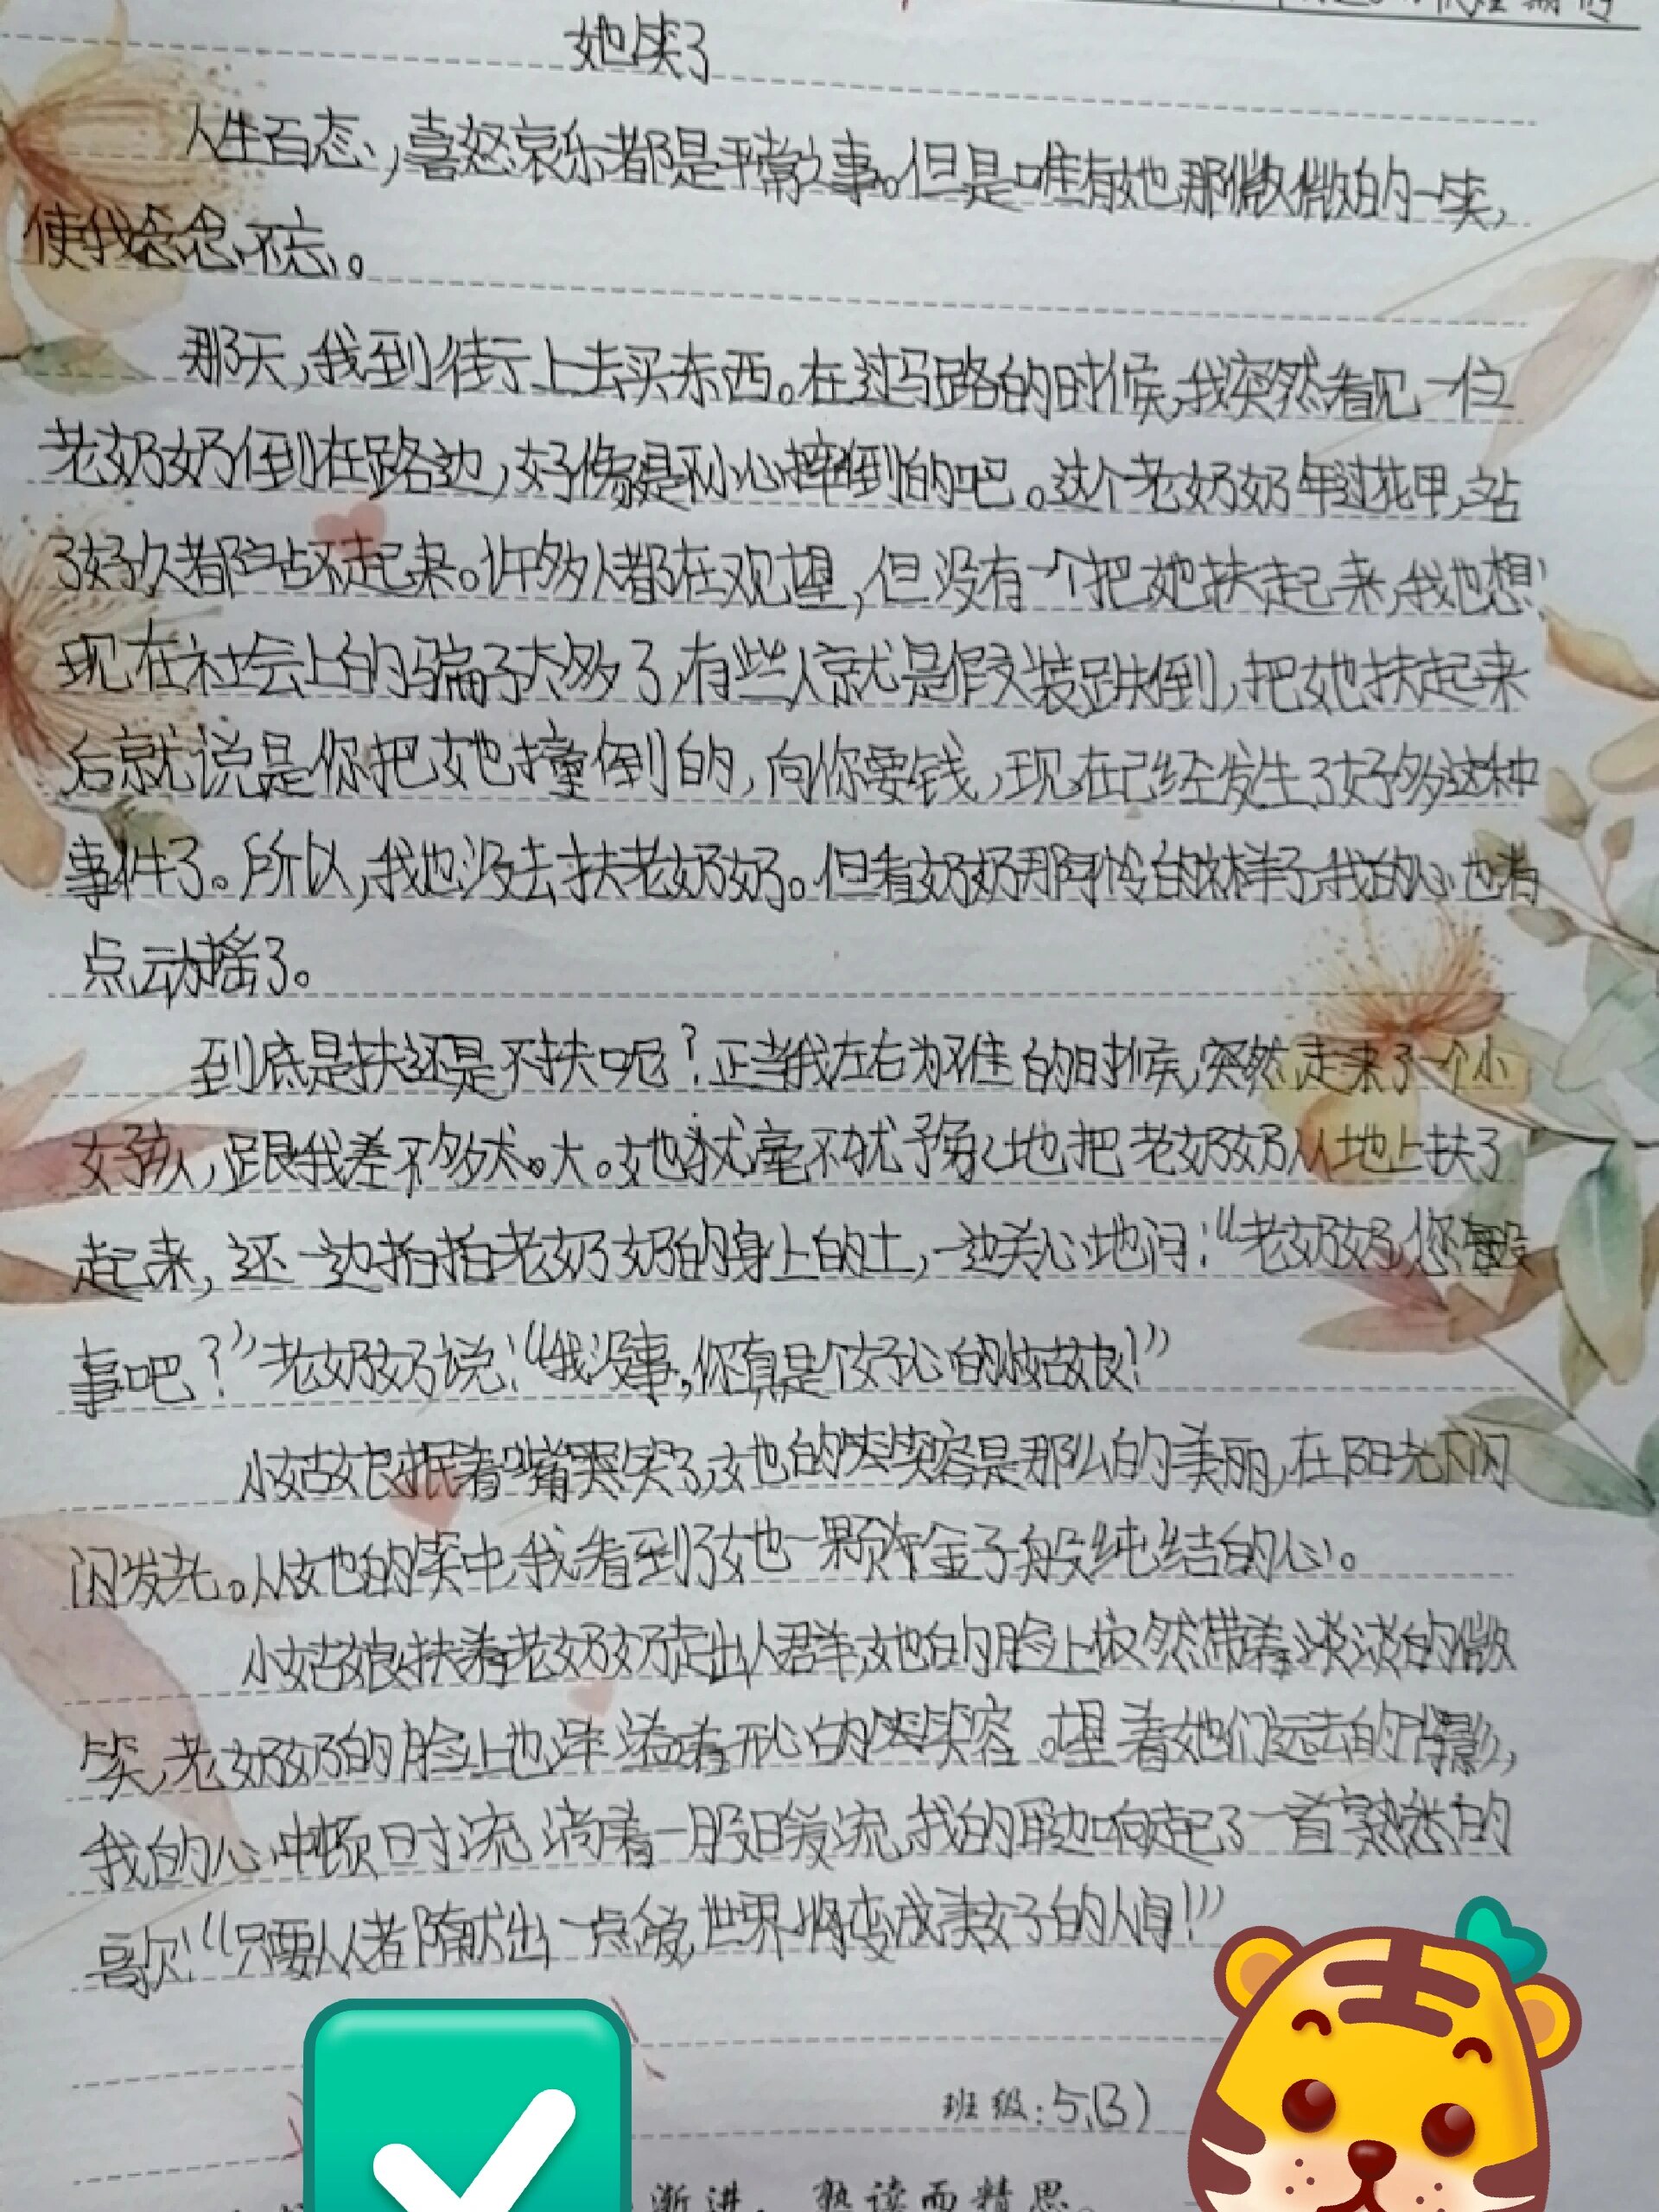 她笑了
人生百态，喜怒哀乐都是平常之事。但是唯有她那微微的一笑，
使我念念不忘。
那天，我到街上去买东西。在过马路的时候，我突然看见一位
老奶奶倒在路边，好像是不小心摔倒的吧。这个老奶奶年过花甲，站
了好久都站不起来。许多人都在观望，但没有一个把她扶起来，我也想，
现在社会上的骗子太多了，有些人就是假装跌倒，把她扶起来
后就说是你把她撞倒的，向你要钱，现在已经发生了好多这种
事件了。所以，我也没去扶老奶奶。但看奶奶那可怜的样子，我的心也有
点动摇了。
到底是扶还是不扶呢？正当我左右为难的时候，突然走来了一个小
女孩，跟我差不多大。她毫不犹豫地把老奶奶从地上扶了
起来，还一边拍拍老奶奶的身上的土，一边关心地问：“老奶奶，您没
事吧？”老奶奶说：“我没事，你真是个好心的小姑娘！”
小姑娘抿着嘴笑了，她的笑容是那么的美丽，在阳光下闪
闪发光。从她的笑中，我看到了她一颗金子般纯洁的心。
小姑娘扶着老奶奶走出人群，她的脸上依然带着淡淡的微
笑，老奶奶的脸上也洋溢着开心的笑容。望着她们远去的背影，
我的心中顿时流淌着一股暖流，我的耳边响起了一首熟悉的
歌：“只要人人都献出一点爱，世界将变成美好的人间！”
班级：5(3)
渐进，熟读而精思。